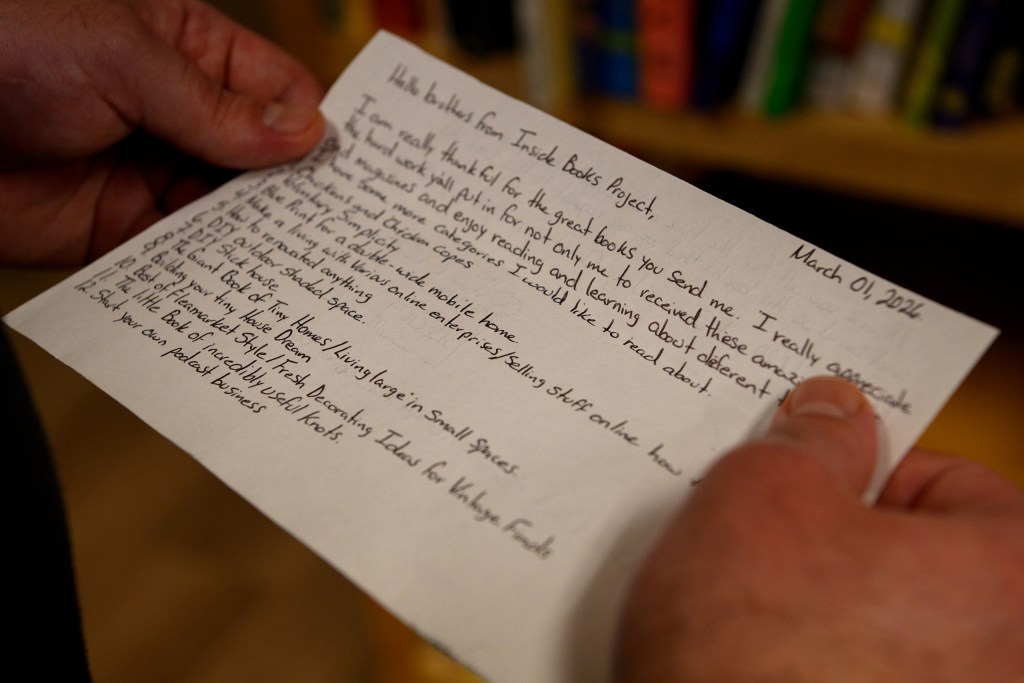 March 01, 2026
Hello brothers from Inside Books Project,
I am really thankful for the great books you send me. I really appreciate
the hard work y'all put in for not only me to received these amaz
and magazines and enjoy reading and learning about diferent
have some more categories I would like to read about.
Chickens and Chicken coops
Voluntary Simplicity
Blue Print for a doble-wide mobile home
Make a living with various online enterprises/Selling stuff online how
How to renovated anything
6. DIY outdoor shaded space.
7. DIY Stick house
8. The Giant Book of Tiny Homes/Living large in Small spaces.
9. Building your tiny House Dream
10. Best of Fleamarket Style/Fresh Decorating Ideas for Vintage Finds
11. The little Book of incredibly useful Knots.
12. Start your own podcast business